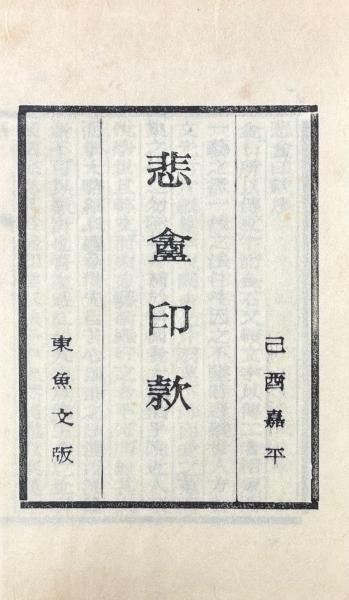 己酉嘉平
悲盦印款
東魚文版